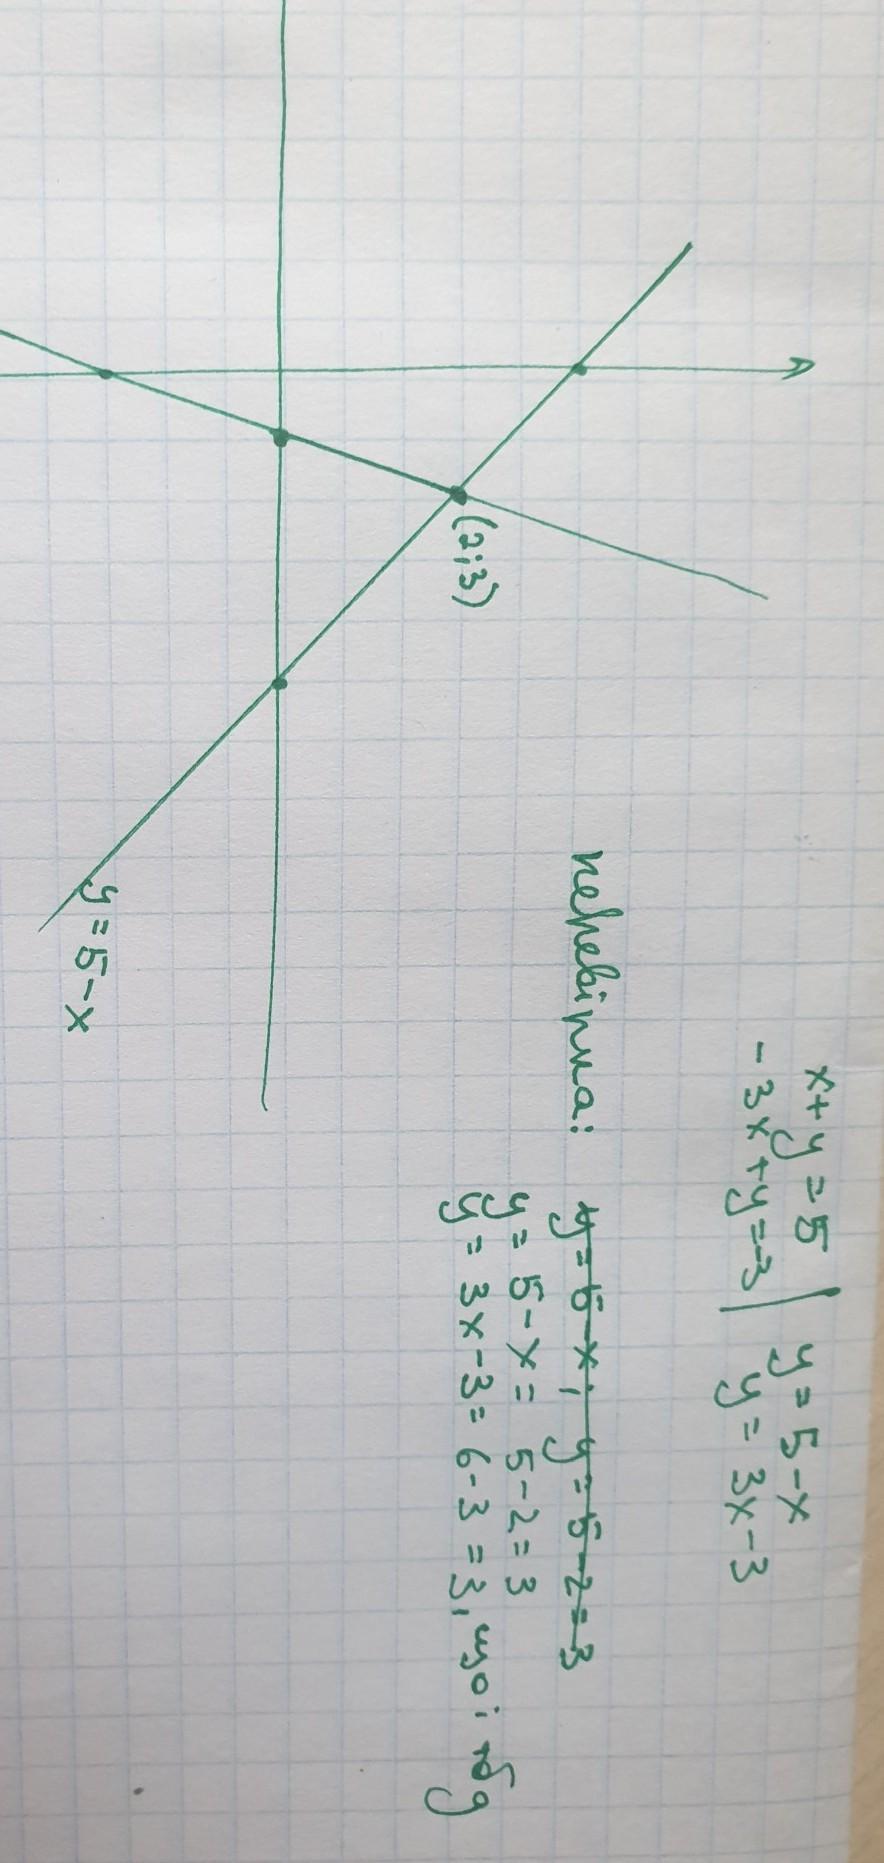 x+y=5 | y=5-x
-3x+y=-3 | y=3x-3
перевірка: ~~y=5-x; y=5-2=3~~
y=5-x= 5-2=3
y=3x-3= 6-3=3, що і тбд
(2;3)
y=5-x